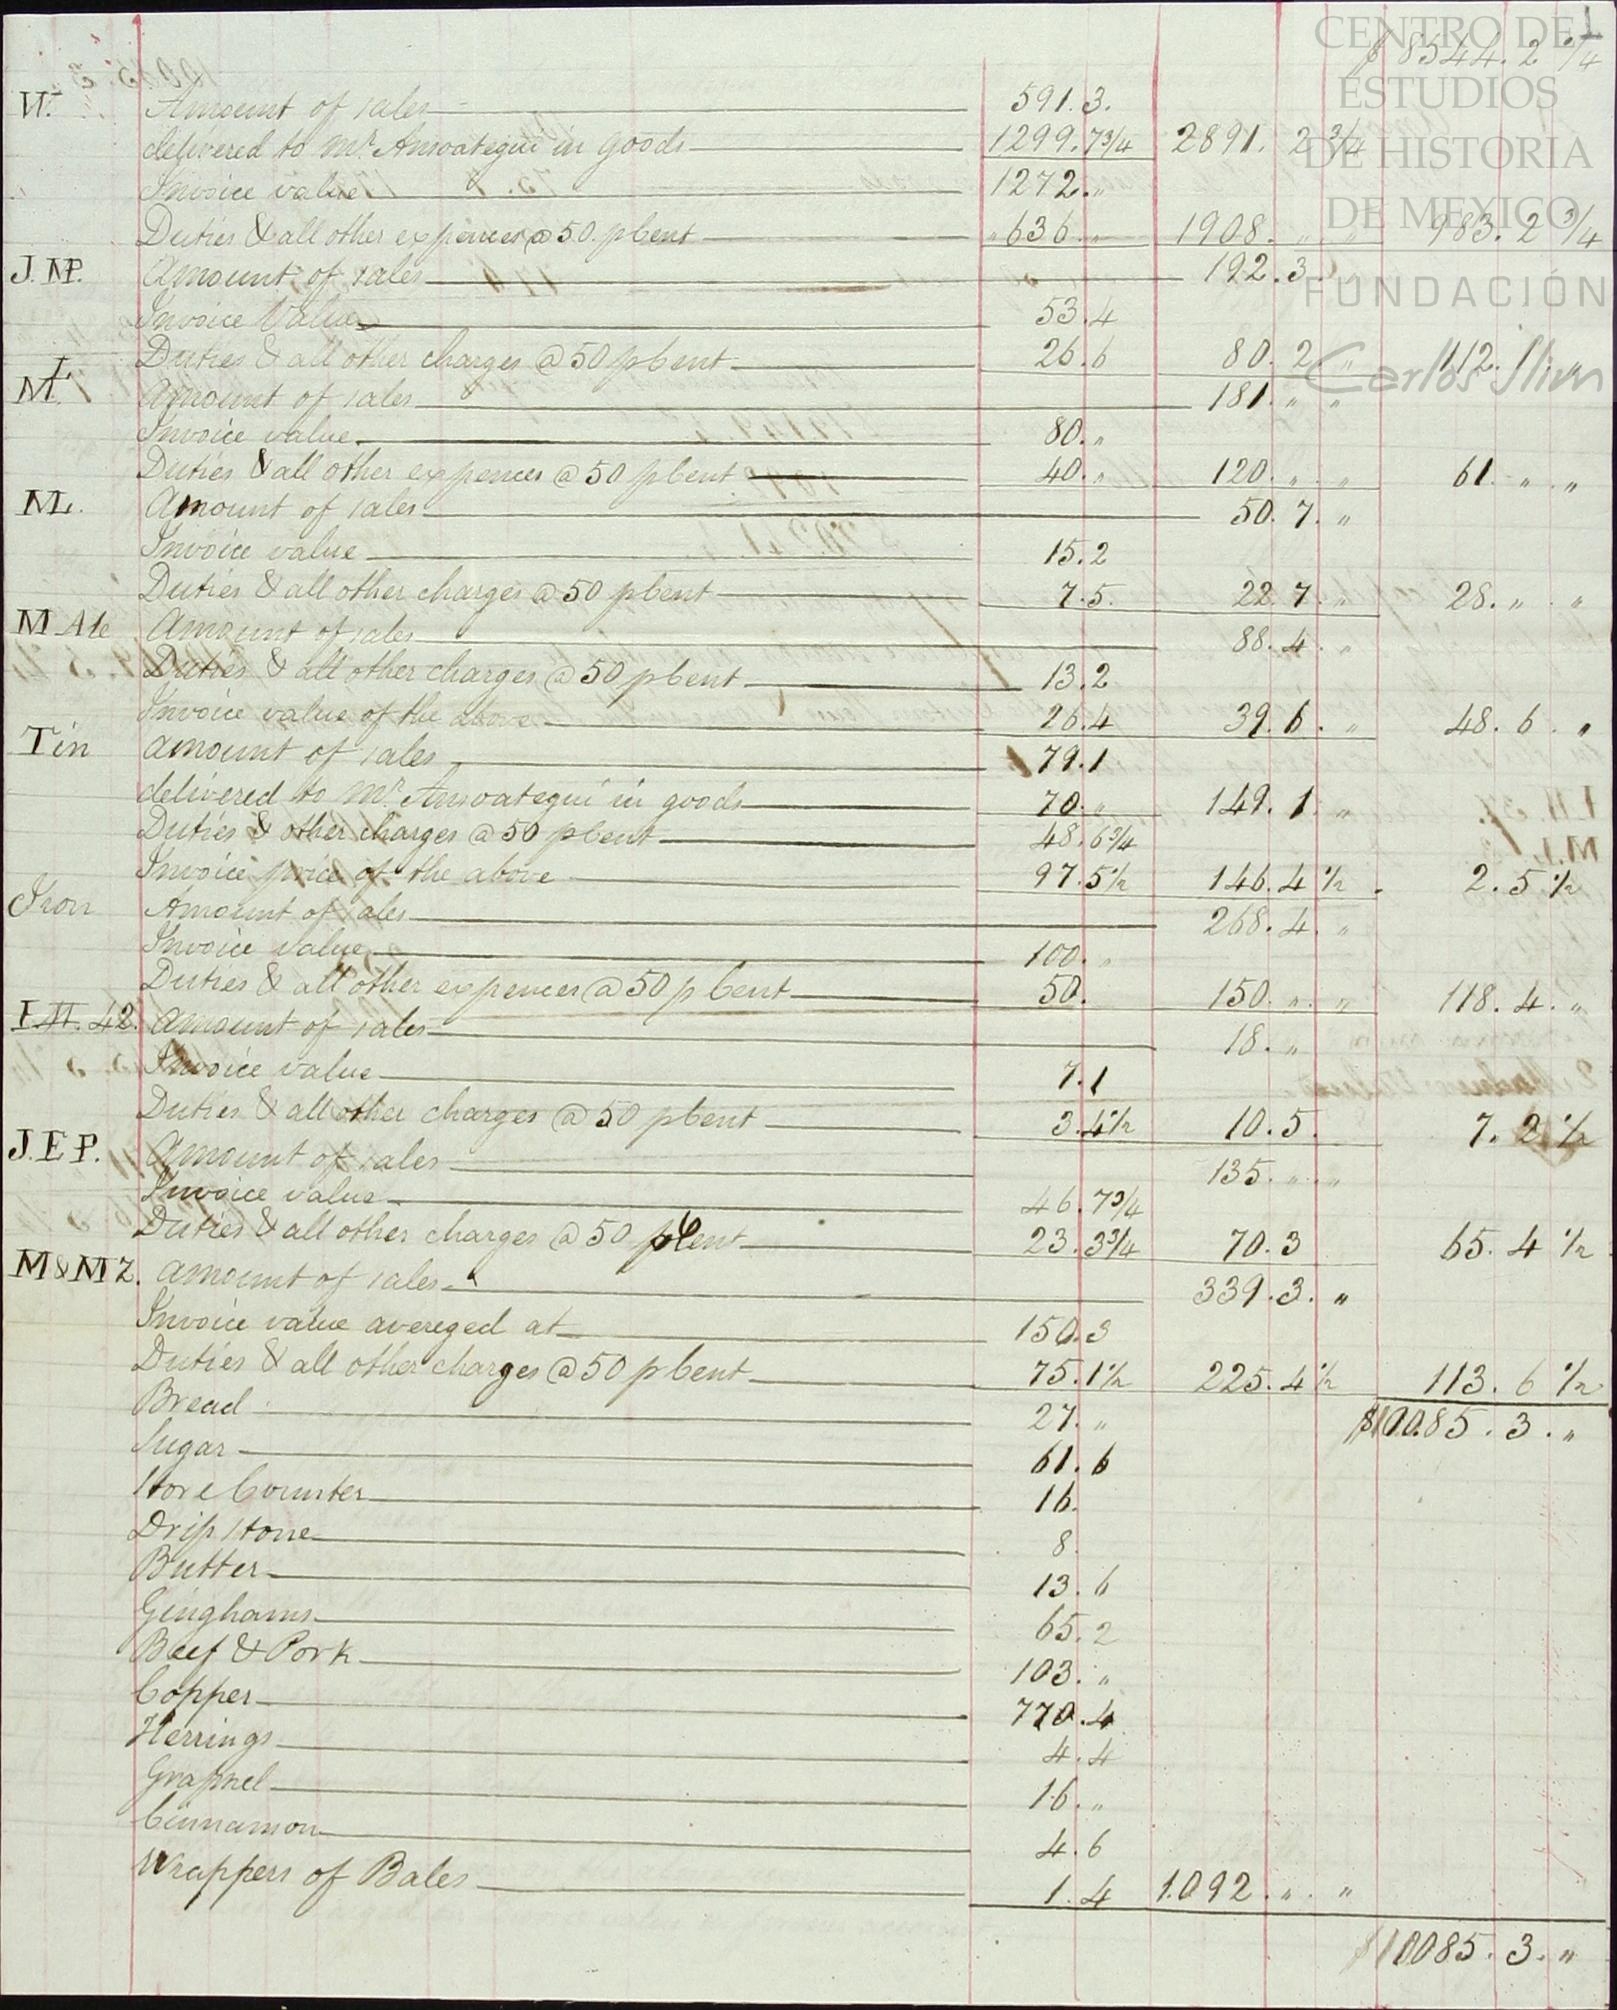 CENTRO DE
ESTUDIOS
DE HISTORIA
DE MEXICO
FUNDACIÓN
Carlos Slim
1
$ 8544. 2 3/4
W. Amount of sales 591.3.
delivered to Mr. Ansoategui in goods 1299.7 3/4 2891. 2 3/4
Invoice value 1272. "
Duties & all other expences @ 50. pCent " 636. " 1908. " " 983. 2 3/4
J. MP. Amount of sales 192. 3. "
Invoice Value 53.4
Duties & all other charges @ 50 pCent 26.6 80. 2 " 112. 1. "
I
M. Amount of sales 181. " "
Invoice value 80. "
Duties & all other expences @ 50 pCent 40. " 120. " " 61. " . "
ML. Amount of sales 50. 7. "
Invoice value 15.2
Duties & all other charges @ 50 pCent 7.5. 22. 7. " 28. " . "
M Ale Amount of sales 88. 4. "
Duties & all other charges @ 50 pCent 13.2
Invoice value of the above 26.4 39. 6. " 48. 6. "
Tin Amount of sales 79.1
delivered to Mr. Ansoategui in goods 70. " 149. 1. "
Duties & other charges @ 50 pCent 48.6 3/4
Invoice price of the above 97.5 1/2 146. 4 1/2 . 2. 5 1/2
Iron Amount of sales 268. 4. "
Invoice value 100. "
Duties & all other expences @ 50 p Cent 50. 150. " . " 118. 4. "
I M. 42. Amount of sales 18. "
Invoice value 7.1
Duties & all other charges @ 50 pCent 3.4 1/2 10. 5. 7. 2 1/2
J. E P. Amount of sales 135. " . "
Invoice value 46. 7 3/4
Duties & all other charges @ 50 pCent 23. 3 3/4 70. 3 65. 4 1/2
M & M Z. Amount of sales 339. 3. "
Invoice value avereged at 150.3
Duties & all other charges @ 50 pCent 75.1 1/2 225. 4 1/2 113. 6 1/2
Bread 27. " $10085. 3. "
Sugar 61. 6
Store Counter 16.
Drip Stone 8.
Butter 13. 6
Ginghams 65. 2
Beef & Pork 103. "
Copper 770. 4
Herrings 4. 4
Grapnel 16. "
Cinnamon 4. 6
Wrappers of Bales 1. 4 1092. " . "
$10085. 3. "